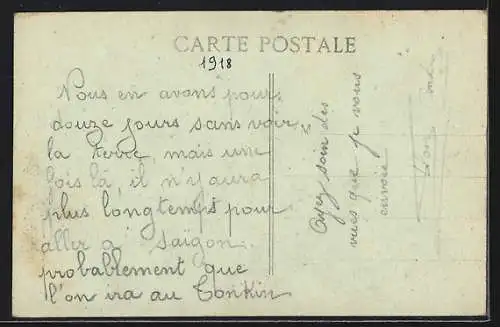 CARTE POSTALE
1918
Nous en avons pour
douze jours sans voir
la terre, mais une
fois là, il n'y aura
plus longtemps pour
aller à Saïgon.
probablement que
l'on ira au Tonkin
Ayez soin des
vues que je vous
envoie